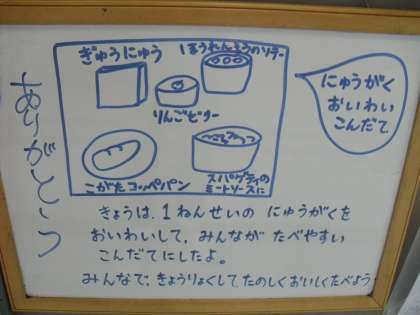 ぎゅうにゅう
ほうれんそうのソテー
りんごゼリー
こがたコッペパン
スパゲティの
ミートソースに
にゅうがく
おいわい
こんだて
ありがとう
きょうは、1ねんせいの にゅうがくを
おいわいして、みんなが たべやすい
こんだてにしたよ。
みんなで、きょうりょくして たのしくおいしくたべよう